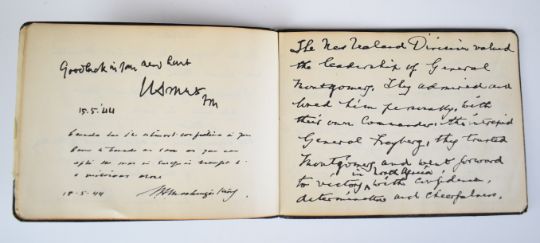 Good luck in your new hunt
JSmuts
fm
15.5.'44
Canada has the utmost confidence in you
as soon as you can
after the war in Europe is brought to
a victorious close
18-5-44 W L Mackenzie King
The New Zealand Division valued
the leadership of General
Montgomery. They admired and
loved him personally, with
their own Commander, the intrepid
General Freyberg, they trusted
Montgomery and went forward
in North Africa,
to victory, with confidence,
determination and cheerfulness.